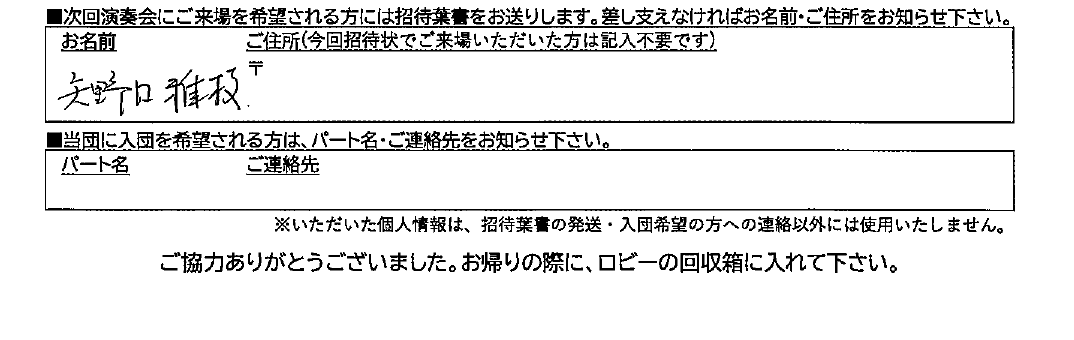 ■次回演奏会にご来場を希望される方には招待葉書をお送りします。差し支えなければお名前・ご住所をお知らせ下さい。
お名前 ご住所(今回招待状でご来場いただいた方は記入不要です)
〒
矢野口 雅
■当団に入団を希望される方は、パート名・ご連絡先をお知らせ下さい。
パート名 ご連絡先
※いただいた個人情報は、招待葉書の発送・入団希望の方への連絡以外には使用いたしません。
ご協力ありがとうございました。お帰りの際に、ロビーの回収箱に入れて下さい。